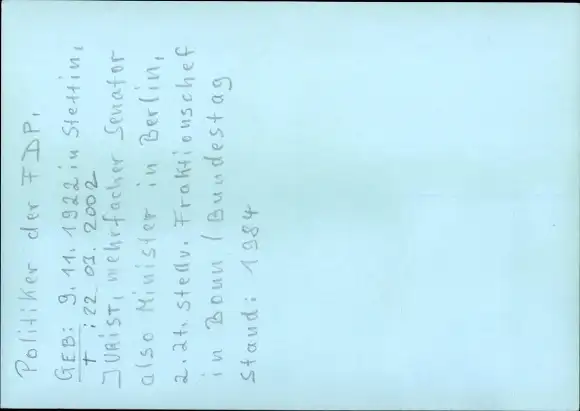 Politiker der FDP,
GEB: 9.11.1922 in Stettin,
† : 22.03.2002
JURIST, mehrfacher Senator
also Minister in Berlin,
z.Zt. stellv. Fraktionschef
in Bonn / Bundestag
Stand: 1984